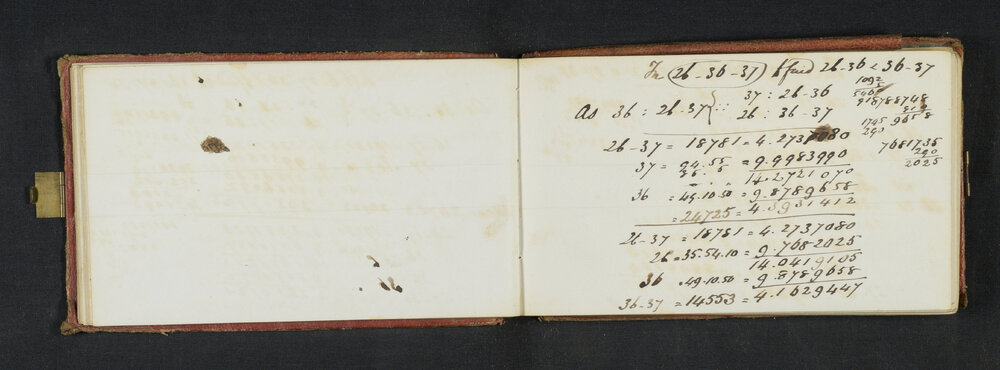 In (26-36-37) to find 26-36 & 36-37
As 36 : 26-37 } :: 37 : 26-36
26 : 36-37
1092
5
546
918788748
1745 9658
290
7681735
290
2025
26-37 = 18781 = 4.2737080
37 = 94.55 = 9.9983990
14.2721070
36 = 49.10.50 = 9.8789658
= 24725 = 4.3931412
26-37 = 18781 = 4.2737080
26 = 35.54.10 = 9.7682025
14.0419105
36 = 49.10.50 = 9.8789658
36-37 = 14553 = 4.1629447